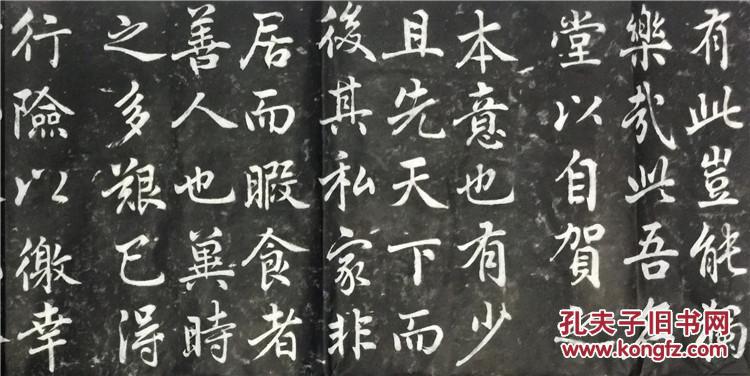 有此豈能獨
樂哉此吾名
堂以自賀
本意也有少
且先天下而
後其私家非
居而暇食者
善人也冀時
之多艱已得
行險以徼幸
孔夫子旧书网
www.kongfz.com